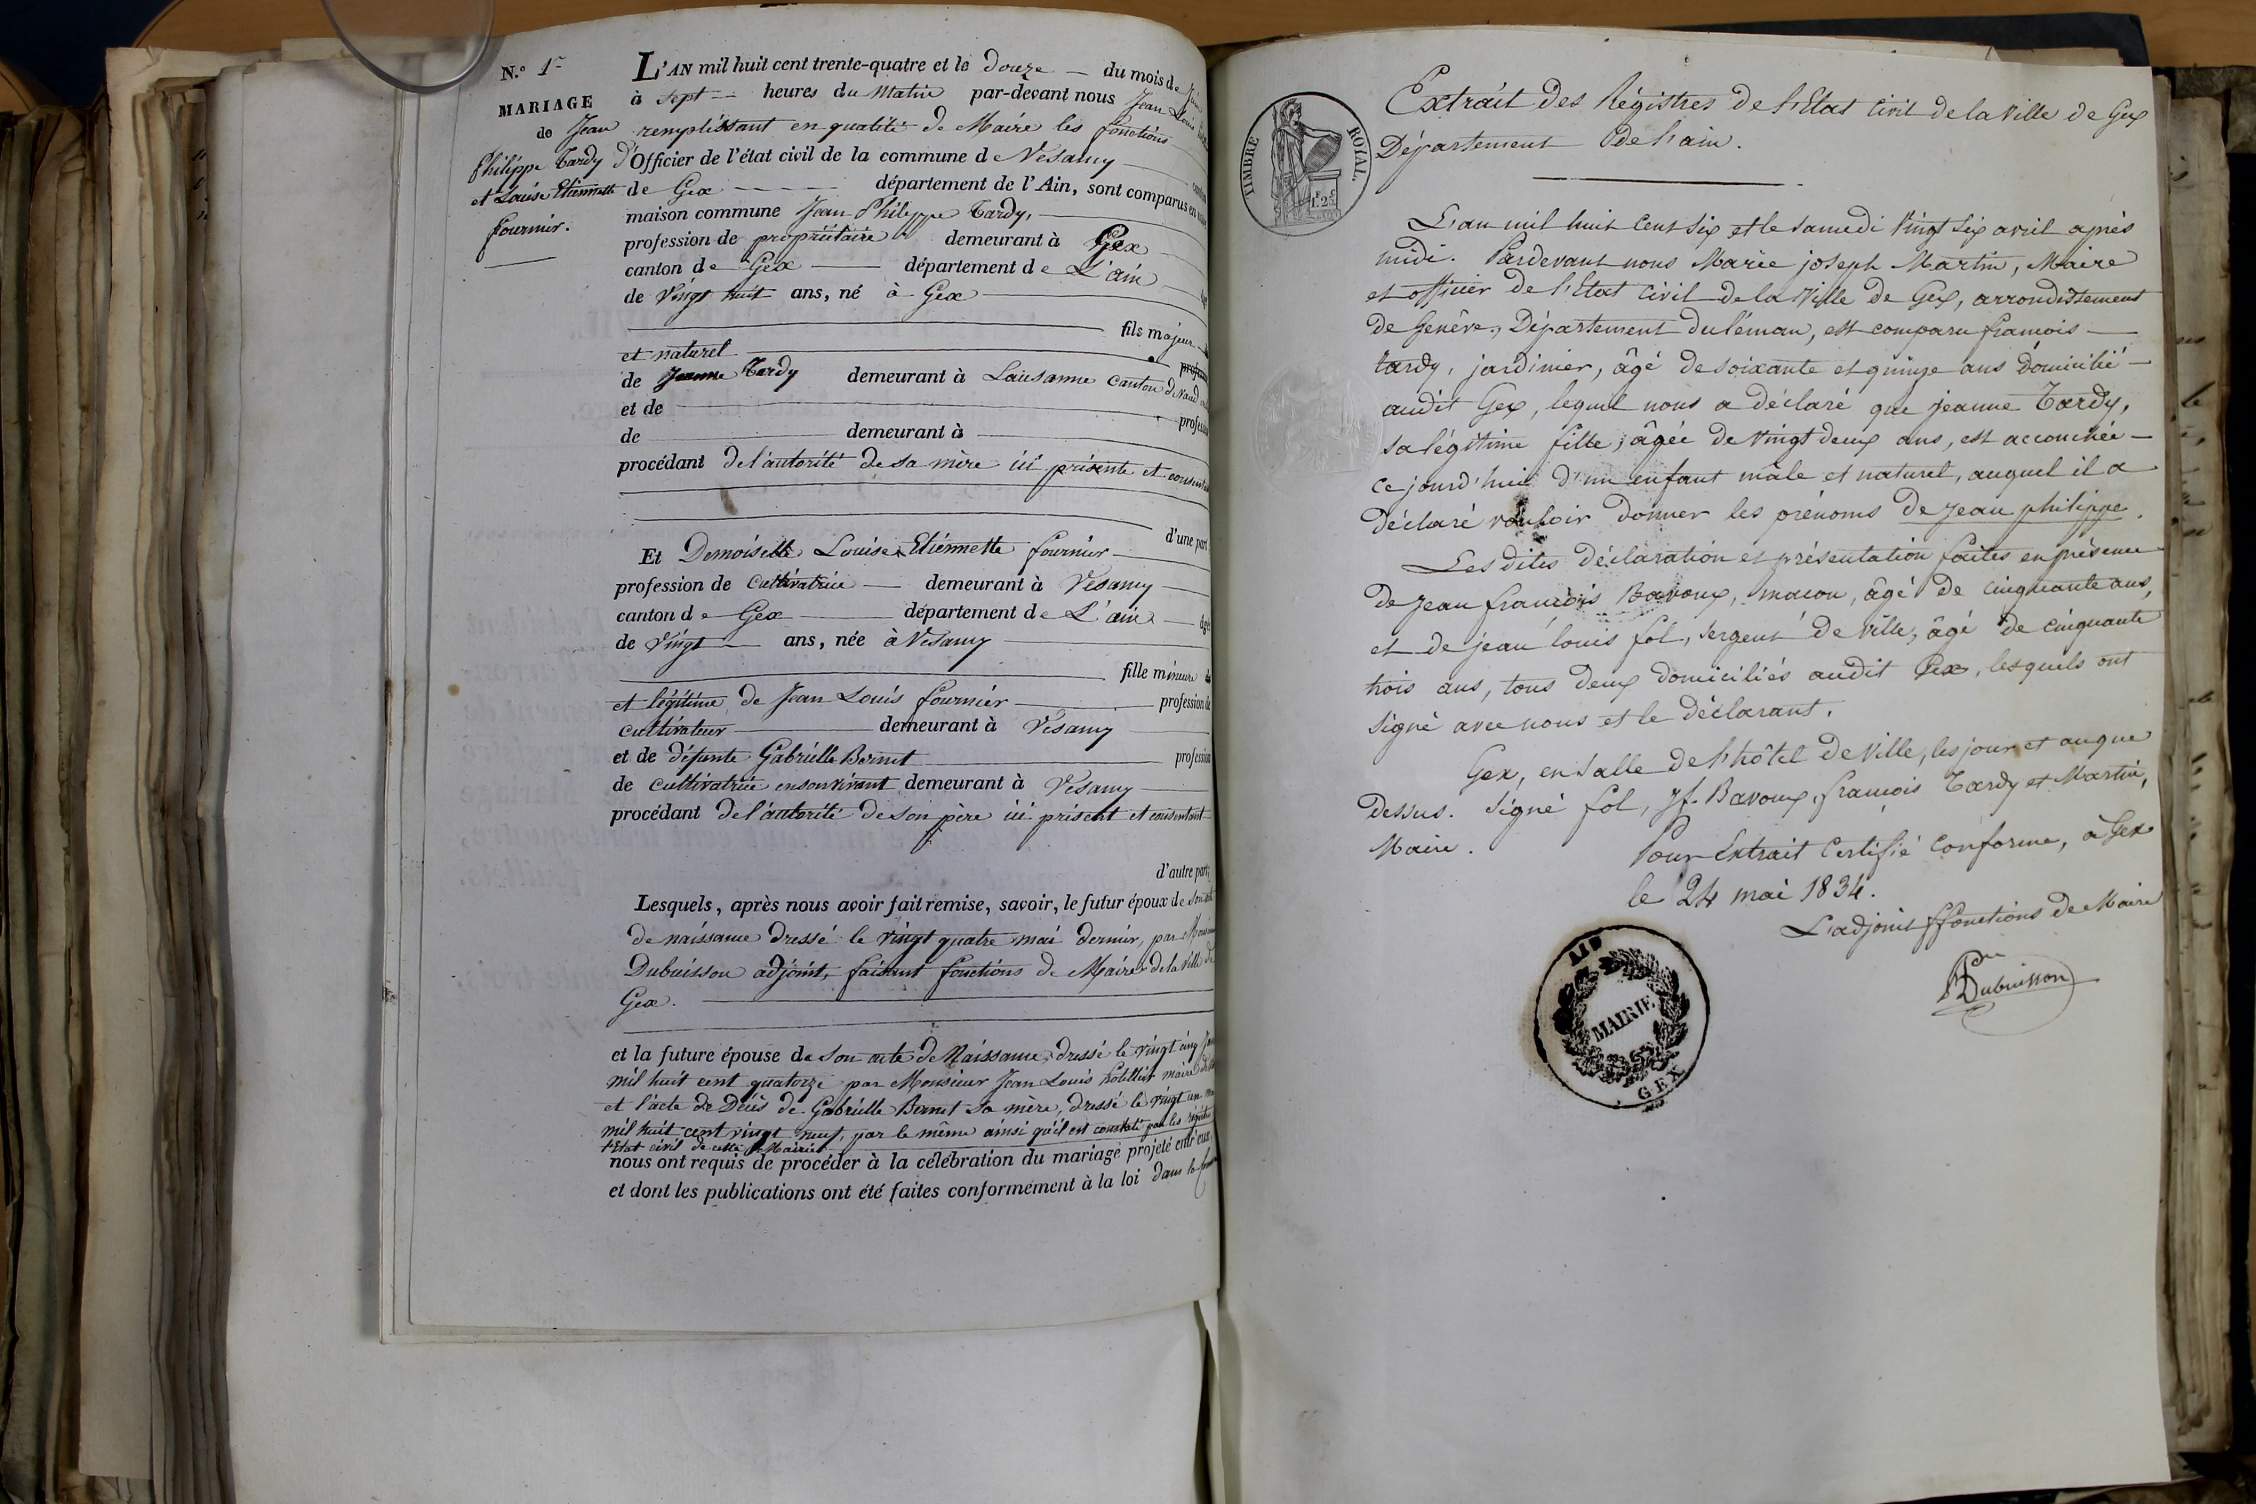 N.° 1er
MARIAGE
de Jean
Philippe Tardy
et Louise Etiennette
fournier.
L'AN mil huit cent trente-quatre et le douze du mois de
à sept heures du Matin par-devant nous Jean Louis
remplissant en qualité de Maire les fonctions
d'Officier de l'état civil de la commune de Vesancy canton
de Gex département de l'Ain, sont comparus en notre
maison commune Jean Philippe Tardy,
profession de propriétaire demeurant à Gex
canton de Gex département de L'ain âgé
de vingt huit ans, né à Gex
fils majeur
et naturel
de Jeanne Tardy demeurant à Lausanne Canton de Vaud
et de profession
de demeurant à
procédant de l'autorité de sa mère ici présente et consentante
d'une part
Et Demoiselle Louise Etiennette fournier
profession de cultivatrice demeurant à Vesancy
canton de Gex département de L'ain âgée
de vingt ans, née à Vesancy
fille mineure
et légitime de Jean Louis fournier profession de
cultivateur demeurant à Vesancy
et de défunte Gabrielle Bornet profession
de cultivatrice en son vivant demeurant à Vesancy
procédant de l'autorité de son père ici présent et consentant
d'autre part;
Lesquels, après nous avoir fait remise, savoir, le futur époux de son acte
de naissance dressé le vingt quatre mai dernier, par Monsieur
Dubuisson adjoint, faisant fonctions de Maire de la ville de
Gex.
et la future épouse de son acte de Naissance, dressé le vingt cinq
mil huit cent quatorze par Monsieur Jean Louis maire
et l'acte de Décès de Gabrielle Bornet sa mère, dressé le vingt un
mil huit cent vingt neuf, par le même ainsi qu'il est constaté par les régistres
l'Etat civil de cette Mairie
nous ont requis de procéder à la célébration du mariage projeté entr'eux,
et dont les publications ont été faites conformément à la loi dans la
TIMBRE ROYAL.
Extrait des Régistres de l'Etat Civil de la ville de Gex
Département de l'ain.
L'an mil huit cent six et le samedi vingt six avril après
midi. Pardevant nous Marie joseph Martin, Maire
et officier de l'Etat civil de la Ville de Gex, arrondissement
de Genêve, Département du léman, est comparu françois
tardy, jardinier, âgé de soixante et quinze ans domicilié
audit Gex, lequel nous a déclaré que jeanne Tardy,
sa légitime fille, âgée de vingt deux ans, est accouchée
ce jourd'hui d'un enfant mâle et naturel, auquel il a
déclaré vouloir donner les prénoms de jean philippe.
Les dites déclaration et présentation faites en présence
de jean françois Bavoux, macon, âgé de cinquante ans,
et de jean louis fol, sergent de ville, âgé de cinquante
trois ans, tous deux domiciliés audit Gex, lesquels ont
signé avec nous et le déclarant.
Gex, en salle de l'hôtel de ville, les jour et an que
dessus. Signé fol, jf. Bavoux, françois Tardy et Martin,
Maire.
Pour Extrait Certifié Conforme, à Gex
le 24 mai 1834.
L'adjoint ffonctions de Maire
Dubuisson
AIN
MAIRIE
GEX